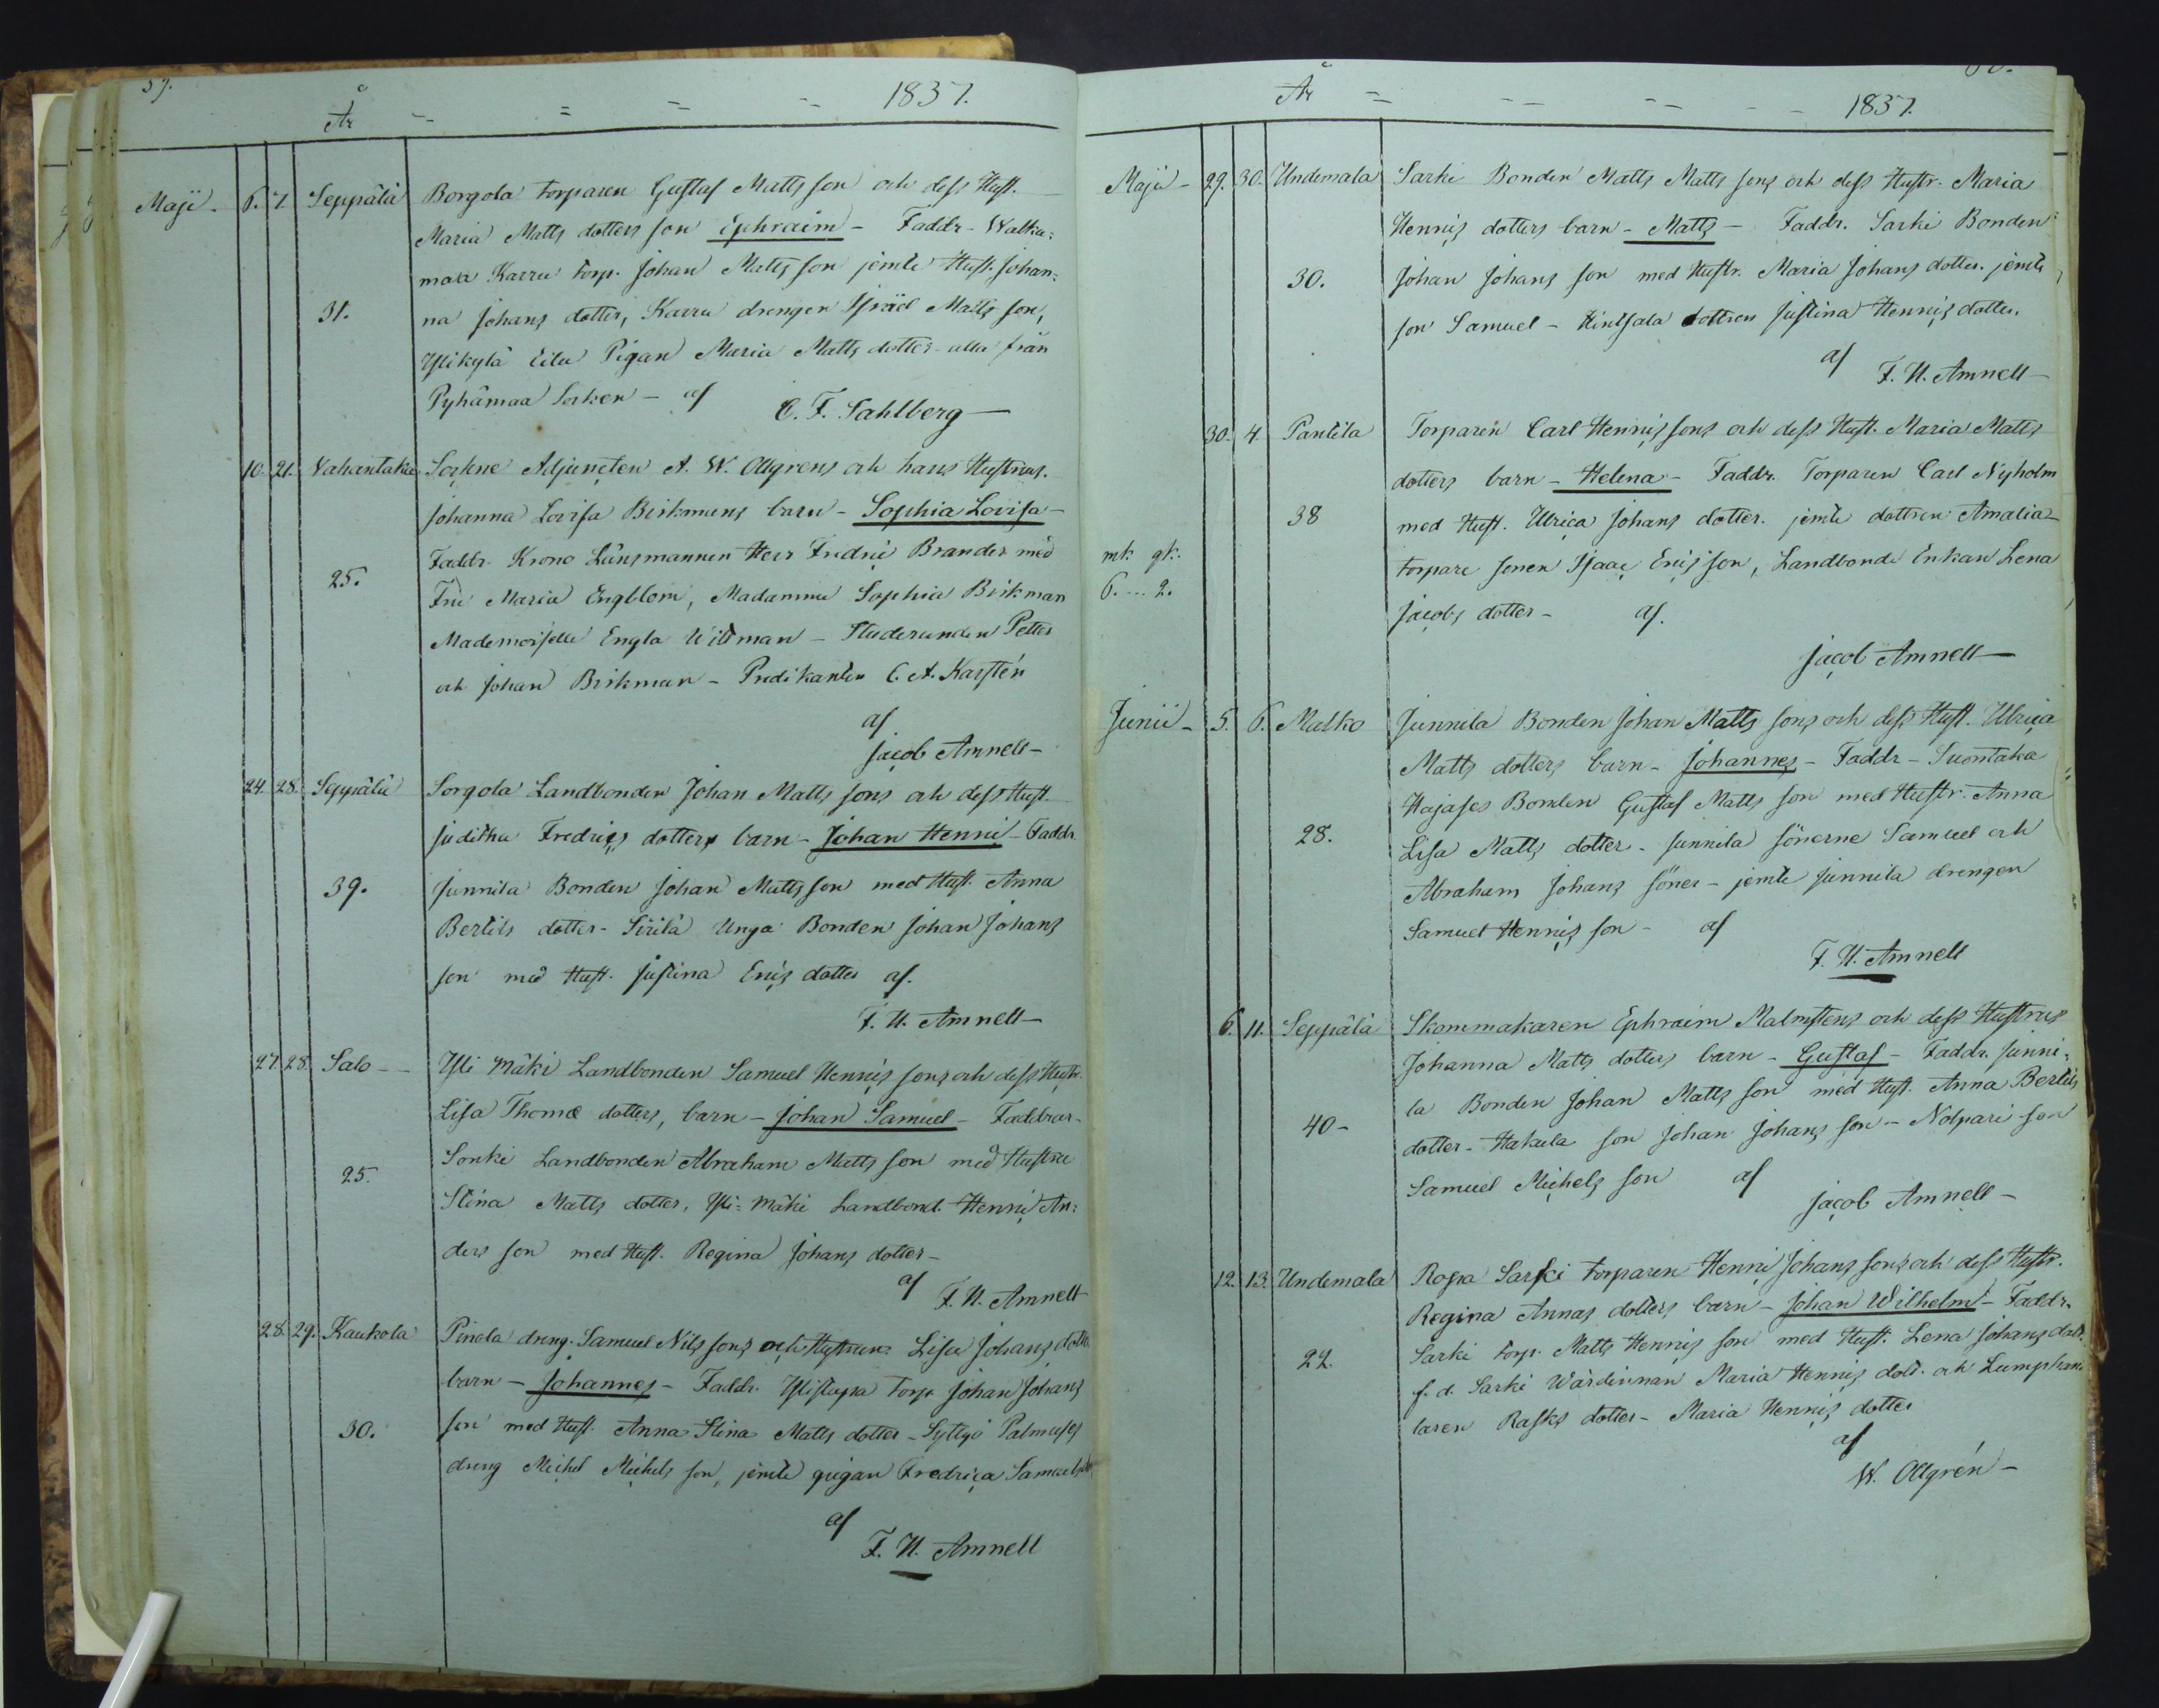 59.
År - = = -- 1837.
Maji - 6. 7. Seppälä Borgola torparen Gustaf Matts son och dess Hust.
Maria Matts dotters son Ephraim - Faddr - Walka:
maa Karru torp. Johan Matts son jemte Hust. Johan:
31. na Johans dotter, Karru drengen Israel Matts son,
Ylikylä Eila Pigan Maria Matts dotter alla från
Pyhämaa Socken - af C. F. Sahlberg -
10. 21. Vahantaka Sockne Adjuncten A. W. Ollgrens och hans Hustrus.
Johanna Lovisa Birkmans barn - Sophia Lovisa -
Faddr. Krono Länsmannen Herr Fredric Brander med
25. Fru Maria Engblom, Madamme Sophia Birkman
Mademoiselle Engla Widman - Studerunden Petter
och Johan Birkman - Predikanten C. A. Karstén
af
Jacob Amnell -
24. 28. Seppälä Sorgola Landbonden Johan Matts sons och dess Hust.
Juditha Fredrics dotters barn - Johan Henric - Faddr.
39. Junnila Bonden Johan Matts son med Hust. Anna
Bertils dotter - Sirilä Unga Bonden Johan Johans
son med Hust. Justina Erics dotter af.
F. U. Amnell -
27. 28. Salo - - Yli Mäki Landbonden Samuel Henrics sons och dess Hustr.
Lisa Thomæ dotters, barn - Johan Samuel - Faddrar -
Sonki Landbonden Abraham Matts son med Hustru
25. Stina Matts dotter, Yli = Mäki Landbond. Henric An:
ders son med Hust. Regina Johans dotter -
af F. U. Amnell
28. 29. Kaukola Pinola dreng. Samuel Nils sons och Hustrun Lisa Johans dotte
barn - Johannes - Faddr. Ylistupa torp. Johan Johans
30. son med Hust. Anna Stina Matts dotter - Syttyö Palmuses
dreng Michel Michels son, jemte pigan Fredrica Samuels
af
F. U. Amnell
60.
År - -- -- - - 1837.
Maji - 29. 30. Undemala Sarki Bonden Matts Matts sons och dess Hustr. Maria
Henrics dotters barn - Matts - Faddr. Sarki Bonden
30. Johan Johans son med Hustr. Maria Johans dotter. jemte
son Samuel - Hintsala dottren Justina Henrics dotter.
af F. U. Amnell -
30. 4. Pantila Torparen Carl Henrics sons och dess Hust. Maria Matts
dotters barn - Helena - Faddr. Torparen Carl Nyholm
38 med Hust. Ulrica Johans dotter. jemte dottren Amalia -
mk gk. torpare sonen Isaac Erics son, Landbonde Enkan Lena
6. ... 2. Jacobs dotter - af.
Jacob Amnell -
Junii - 5. 6. Malko Junnila Bonden Johan Matts sons och dess Hust. Ulrica
Matts dotters barn - Johannes - Faddr - Suontaka
Hajases Bonden Gustaf Matts son med Hustr. Anna
28. Lisa Matts dotter - Junnila sönerne Samuel och
Abraham Johans söner - jemte Junnila drengen
Samuel Henrics son - af
F. U. Amnell
6. 11. Seppälä Skommakaren Ephraim Malmstens och dess Hustrus
Johanna Matts dotters barn - Gustaf - Faddr. Junni:
la Bonden Johan Matts son med Hust. Anna Bertils
40 - dotter - Hakula son Johan Johans son - Nolpari son
Samuel Michels son af
Jacob Amnell -
12. 13. Undemala Ropa Sarki torparen Henric Johans sons och dess Hustr.
Regina Annas dotters barn - Johan Wilhelm - Faddr.
27. Sarki torp. Matts Henrics son med Hust. Lena Johans dott.
f. d. Sarki Wärdinnan Maria Henrics dott. och Lumphan
laren Rasks dotter - Maria Henrics dotter
af
W. Ollgrén -